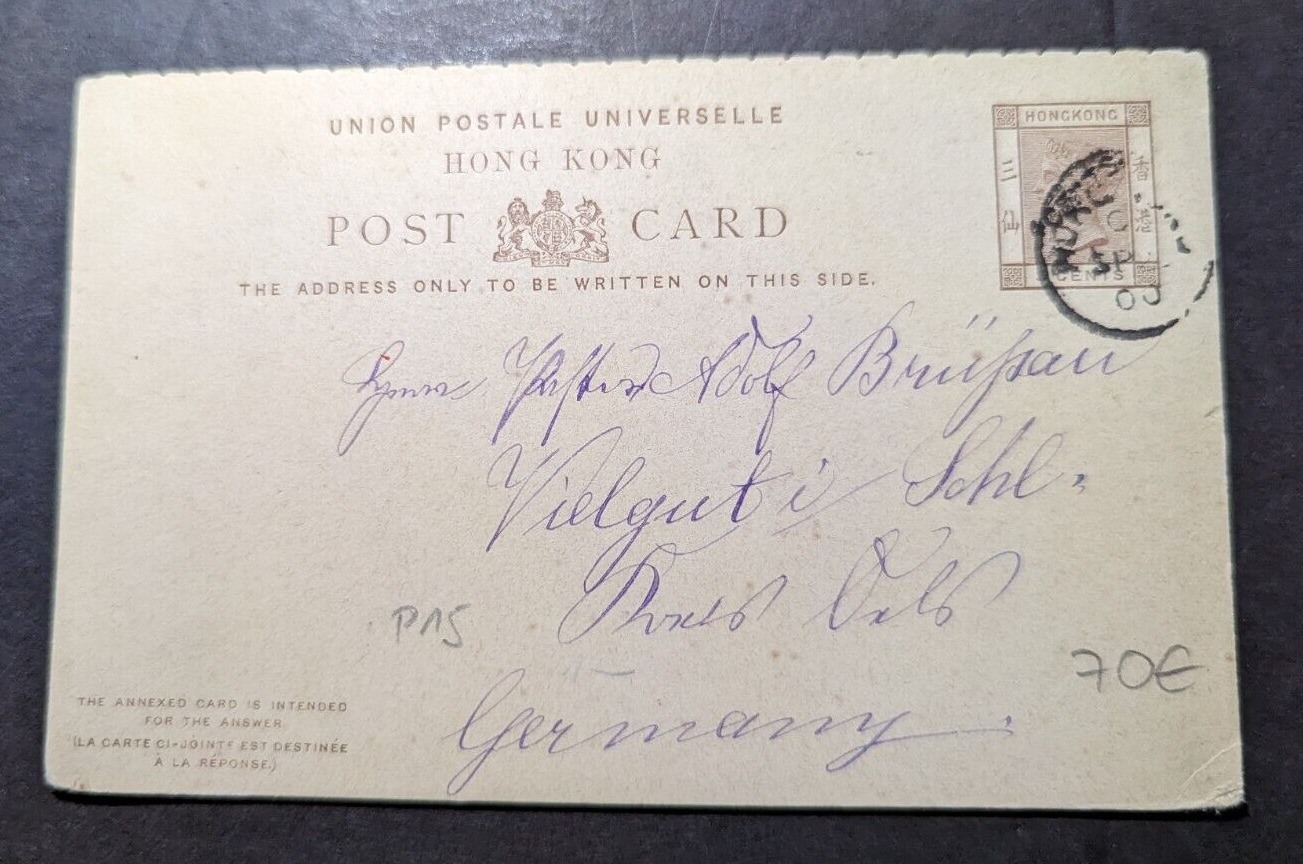 UNION POSTALE UNIVERSELLE
HONG KONG
POST CARD
THE ADDRESS ONLY TO BE WRITTEN ON THIS SIDE.
HONGKONG
三仙
香港
CENTS
C
SP
00
Herrn Pastor Adolf Brüßau
Vielgut i Schl.
Kreis Oels
Germany.
P15
70€
THE ANNEXED CARD IS INTENDED
FOR THE ANSWER
(LA CARTE CI-JOINTE EST DESTINÉE
À LA RÉPONSE.)